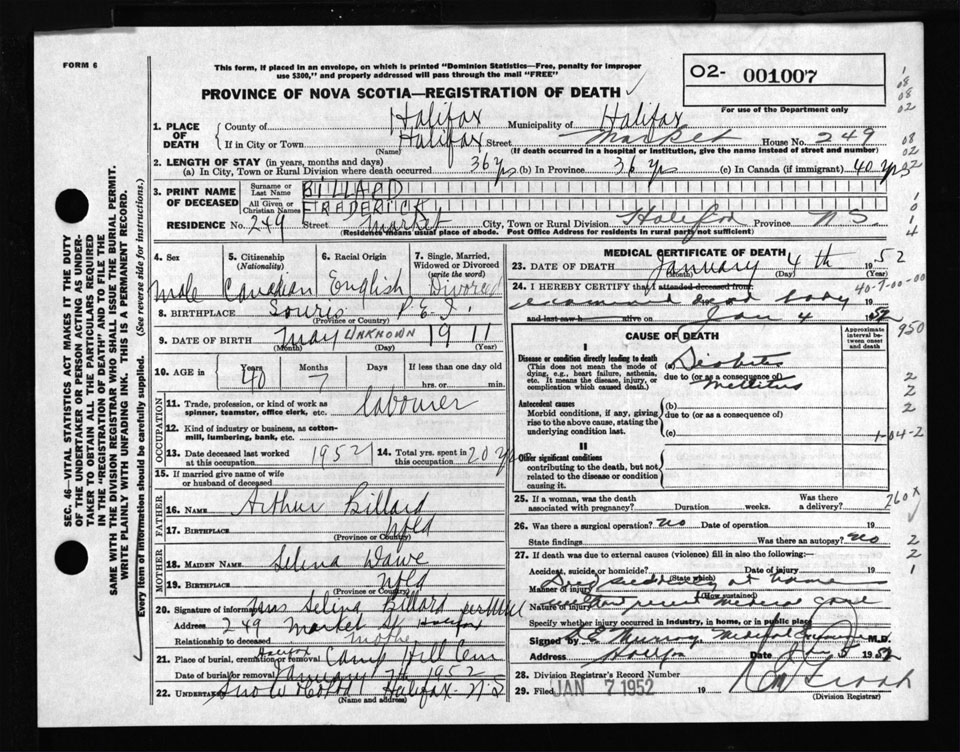 FORM 6
This form, if placed in an envelope, on which is printed "Dominion Statistics—Free, penalty for improper
use $300," and properly addressed will pass through the mail "FREE"
O2- 001007
PROVINCE OF NOVA SCOTIA—REGISTRATION OF DEATH
For use of the Department only
SEC. 46—VITAL STATISTICS ACT MAKES IT THE DUTY
OF THE UNDERTAKER OR PERSON ACTING AS UNDER-
TAKER TO OBTAIN ALL THE PARTICULARS REQUIRED
IN THE "REGISTRATION OF DEATH" AND TO FILE THE
SAME WITH THE DIVISION REGISTRAR WHO SHALL ISSUE THE BURIAL PERMIT.
WRITE PLAINLY WITH UNFADING INK. THIS IS A PERMANENT RECORD.
Every item of information should be carefully supplied. (See reverse side for instructions.)
1. PLACE OF DEATH County of Halifax Municipality of Halifax
If in City or Town Halifax Street Market House No. 249
(Name) (If death occurred in a hospital or institution, give the name instead of street and number)
2. LENGTH OF STAY (in years, months and days)
(a) In City, Town or Rural Division where death occurred 36 yrs (b) In Province 36 yrs (c) In Canada (if immigrant) 40 yrs
3. PRINT NAME OF DECEASED Surname or Last Name BILLARD
All Given or Christian Names FREDERICK
RESIDENCE No. 249 Street Market City, Town or Rural Division Halifax Province N.S.
(Residence means usual place of abode. Post Office Address for residents in rural parts not sufficient)
4. Sex 5. Citizenship (Nationality) 6. Racial Origin 7. Single, Married, Widowed or Divorced (write the word)
Male Canadian English Divorced
8. BIRTHPLACE Souris P.E.I.
(Province or Country)
9. DATE OF BIRTH May UNKNOWN 1911
(Month) (Day) (Year)
10. AGE in Years Months Days If less than one day old
40 7 hrs. or min.
OCCUPATION
11. Trade, profession, or kind of work as
spinner, teamster, office clerk, etc. labourer
12. Kind of industry or business, as cotten-
mill, lumbering, bank, etc.
13. Date deceased last worked at this occupation 1952 14. Total yrs. spent in this occupation 20 yrs
15. If married give name of wife
or husband of deceased
FATHER
16. NAME Arthur Billard
17. BIRTHPLACE Nfld
(Province or Country)
MOTHER
18. MAIDEN NAME Selina Dawe
19. BIRTHPLACE Nfld
(Province or Country)
20. Signature of informant Mrs Selina Billard
Address 249 Market St Halifax
Relationship to deceased mother
21. Place of burial, cremation or removal Halifax Camp Hill Cem
Date of burial or removal January 7th 1952
22. UNDERTAKER Snow Halifax N.S
(Name and Address)
MEDICAL CERTIFICATE OF DEATH
23. DATE OF DEATH January 4th 1952
(Month) (Day) (Year)
24. I HEREBY CERTIFY that I attended deceased from 40-7-00-00
examined dead body
and last saw h alive on Jan 4 1952
CAUSE OF DEATH Approximate interval between onset and death
950
I
Disease or condition directly leading to death
(This does not mean the mode of
dying, e.g., heart failure, asthenia,
etc. It means the disease, injury, or
complication which caused death.)
(a) Diabetes
due to (or as a consequence of)
Mellitus
Antecedent causes
Morbid conditions, if any, giving
rise to the above cause, stating the
underlying condition last.
(b)
due to (or as a consequence of)
(c)
1-04-2
II
Other significant conditions
contributing to the death, but not
related to the disease or condition
causing it.
25. If a woman, was the death Was there
associated with pregnancy? Duration weeks. a delivery?
260X
26. Was there a surgical operation? no Date of operation 19
State findings Was there an autopsy? no
27. If death was due to external causes (violence) fill in also the following:
Accident, suicide or homicide? Date of injury 19
(State which)
Manner of injury Died suddenly at home
(How sustained)
Nature of injury recent medical care
Specify whether injury occurred in industry, in home, or in public place
Signed by Murray Medical Examiner M.D.
Address Halifax Date Jan 5 1952
28. Division Registrar's Record Number
29. Filed JAN 7 1952 19
(Division Registrar)